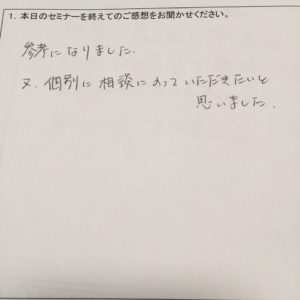 1. 本日のセミナーを終えてのご感想をお聞かせください。
参考になりました.
又、個別に相談にのっていただきたいと
思いました.